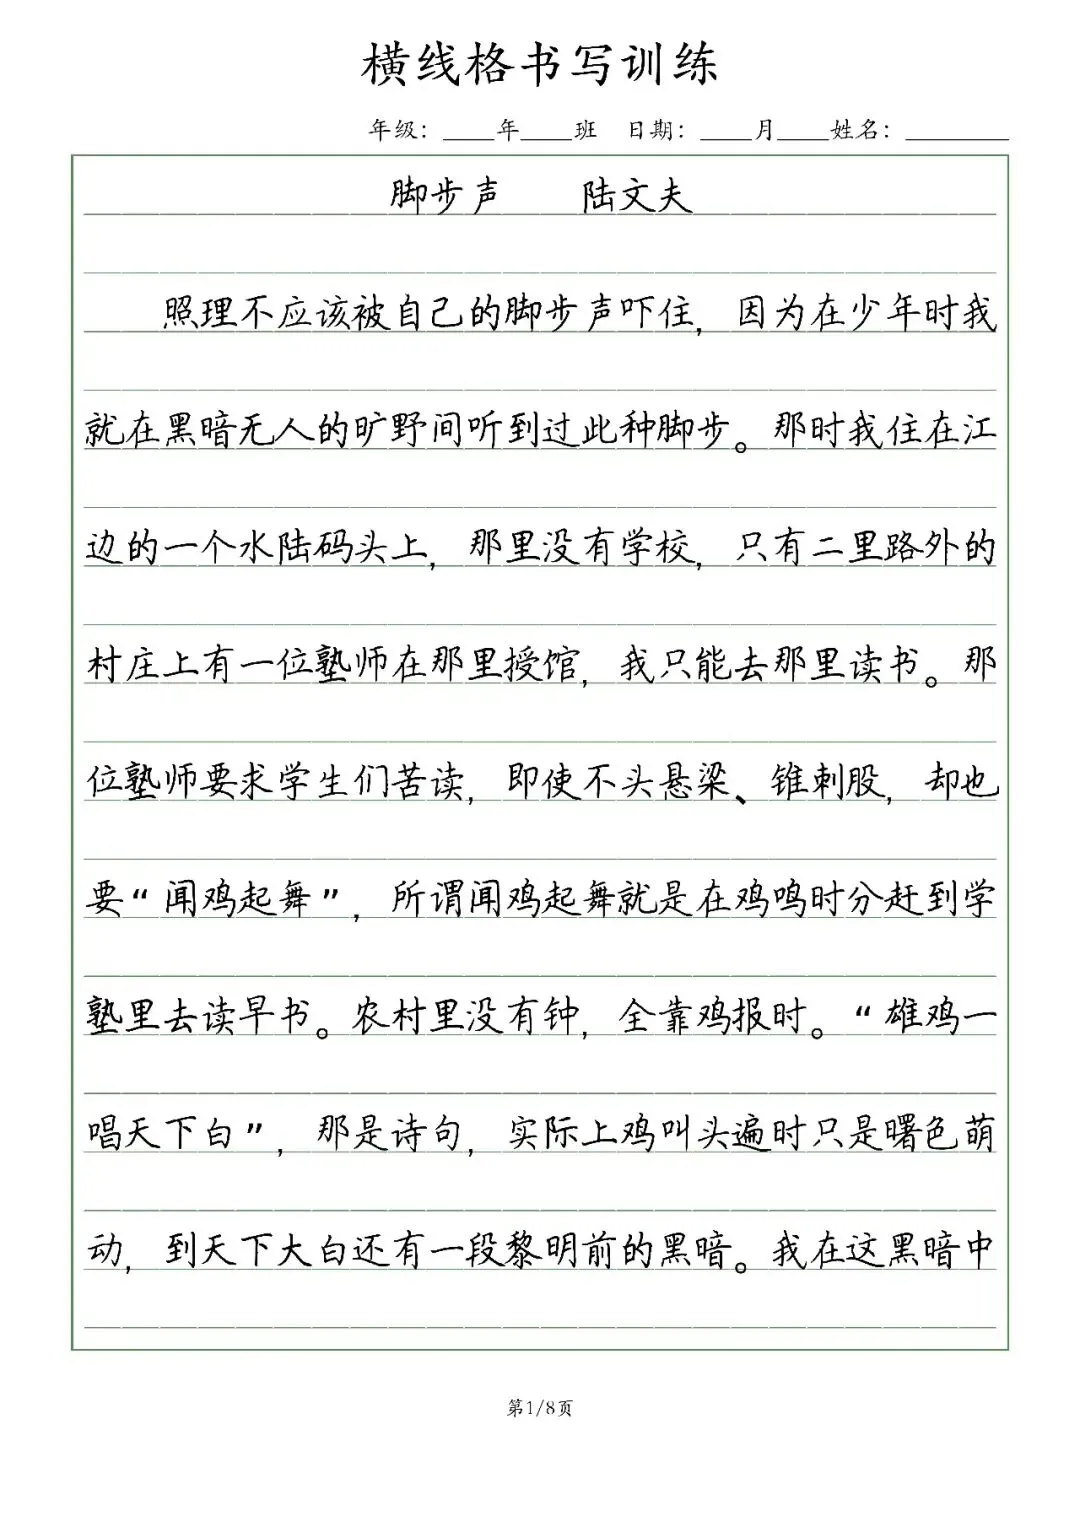 横线格书写训练
年级：____年____班 日期：____月____姓名：________
脚步声 陆文夫
照理不应该被自己的脚步声吓住，因为在少年时我
就在黑暗无人的旷野间听到过此种脚步。那时我住在江
边的一个水陆码头上，那里没有学校，只有二里路外的
村庄上有一位塾师在那里授馆，我只能去那里读书。那
位塾师要求学生们苦读，即使不头悬梁、锥刺股，却也
要“闻鸡起舞”，所谓闻鸡起舞就是在鸡鸣时分赶到学
塾里去读早书。农村里没有钟，全靠鸡报时。“雄鸡一
唱天下白”，那是诗句，实际上鸡叫头遍时只是曙色萌
动，到天下大白还有一段黎明前的黑暗。我在这黑暗中
第1/8页